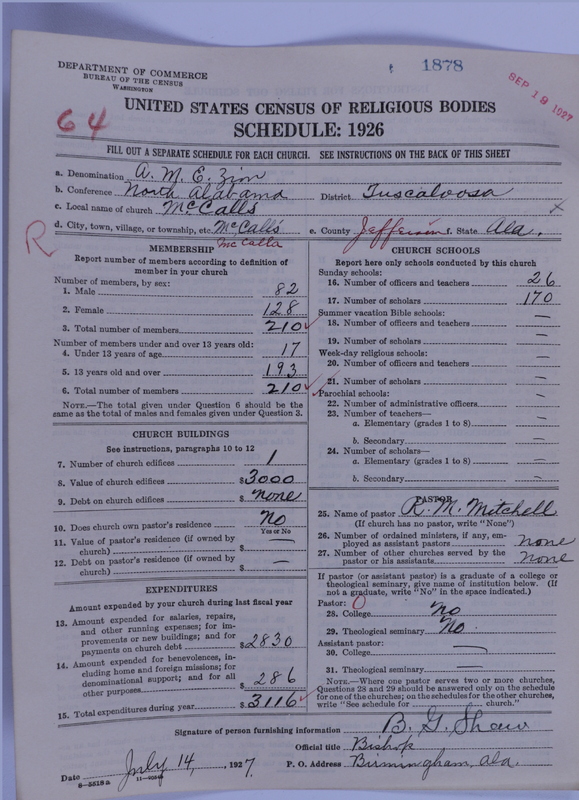 1878
SEP 19 1927
DEPARTMENT OF COMMERCE
BUREAU OF THE CENSUS
WASHINGTON
64
UNITED STATES CENSUS OF RELIGIOUS BODIES
SCHEDULE: 1926
FILL OUT A SEPARATE SCHEDULE FOR EACH CHURCH. SEE INSTRUCTIONS ON THE BACK OF THIS SHEET
a. Denomination A. M. E. Zion
b. Conference North Alabama District Tuscaloosa
c. Local name of church McCalls X
d. City, town, village, or township, etc. McCalls e. County Jefferson f. State Ala.
R
McCalla
MEMBERSHIP
Report number of members according to definition of member in your church
Number of members, by sex:
1. Male 82
2. Female 128
3. Total number of members 210 ✓
Number of members under and over 13 years old:
4. Under 13 years of age 17
5. 13 years old and over 193
6. Total number of members 210 ✓
NOTE.—The total given under Question 6 should be
the same as the total of males and females given under Question 3.
CHURCH BUILDINGS
See instructions, paragraphs 10 to 12
7. Number of church edifices 1
8. Value of church edifices $3000
9. Debt on church edifices $none
10. Does church own pastor's residence No
Yes or No
11. Value of pastor's residence (if owned by
church) $ —
12. Debt on pastor's residence (if owned by
church) $ —
EXPENDITURES
Amount expended by your church during last fiscal year
13. Amount expended for salaries, repairs,
and other running expenses; for im-
provements or new buildings; and for
payments on church debt $2830
14. Amount expended for benevolences, in-
cluding home and foreign missions; for
denominational support; and for all
other purposes $286
15. Total expenditures during year $3116 ✓
CHURCH SCHOOLS
Report here only schools conducted by this church
Sunday schools:
16. Number of officers and teachers 26
17. Number of scholars 170
Summer vacation Bible schools:
18. Number of officers and teachers —
19. Number of scholars —
Week-day religious schools:
20. Number of officers and teachers —
21. Number of scholars —
Parochial schools:
22. Number of administrative officers —
23. Number of teachers—
a. Elementary (grades 1 to 8) —
b. Secondary —
24. Number of scholars—
a. Elementary (grades 1 to 8) —
b. Secondary —
PASTOR
25. Name of pastor R. M. Mitchell
(If church has no pastor, write "None")
26. Number of ordained ministers, if any, em-
ployed as assistant pastors none
27. Number of other churches served by the
pastor or his assistants none
If pastor (or assistant pastor) is a graduate of a college or
theological seminary, give name of institution below. (If
not a graduate, write "No" in the space indicated.)
Pastor: 0
28. College no
29. Theological seminary No
Assistant pastor:
30. College —
31. Theological seminary —
NOTE.—Where one pastor serves two or more churches,
Questions 28 and 29 should be answered only on the schedule
for one of the churches; on the schedules for the other churches,
write "See schedule for church."
Signature of person furnishing information B. G. Shaw
Official title Bishop
Date July 14, 1927. P. O. Address Birmingham, Ala.
8-5518a